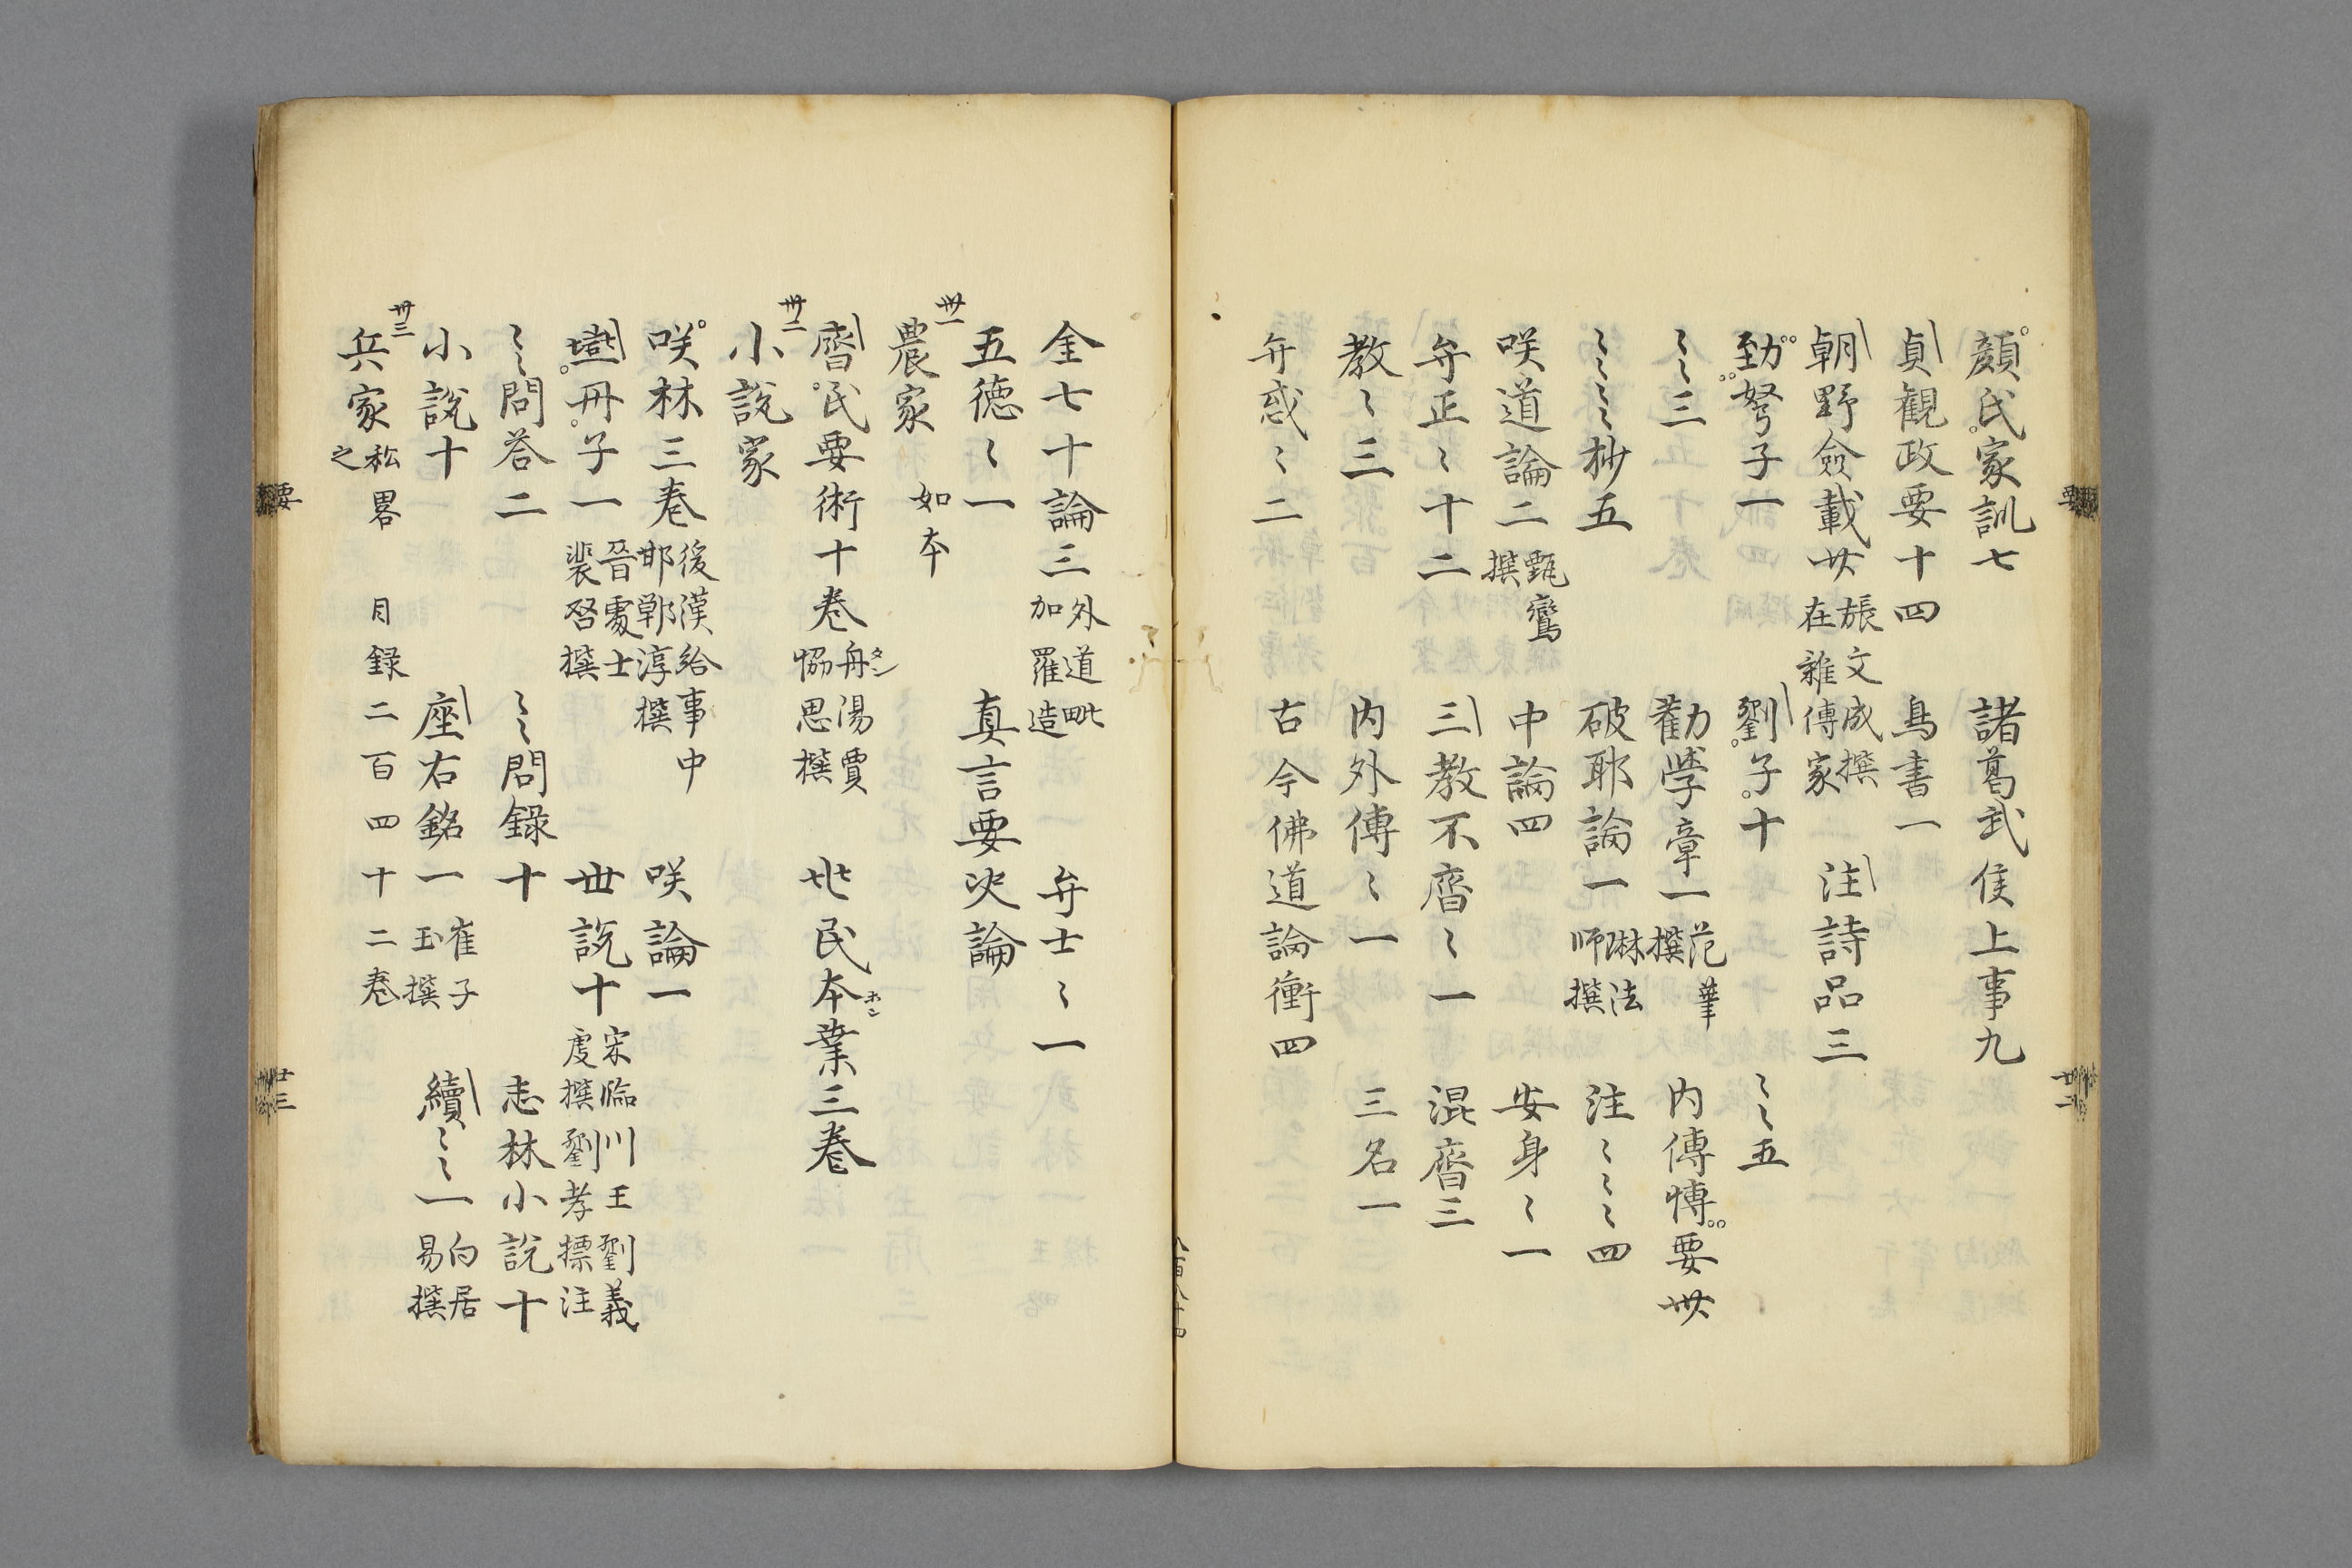 顔氏家訓七 諸葛武侯上事九
貞觀政要十四 鳥書一
朝野僉載廿 張文成撰 在雜傳家 注詩品三
劉子十 〻〻五
〻〻三 勸學章一 范華撰 内傳博要卅
〻〻〻抄五 破耶論一 琳法師撰 注〻〻〻四
咲道論二 甄鸞撰 中論四 安身〻一
弁正〻十二 三教不齊〻一 混齊三
教〻三 内外傳〻一 三名一
弁惑〻二 古今佛道論衡四
金七十論三 外道毗加羅造 弁士〻一
五德〻一 真言要决論
卅一
農家 如本
齊民要術十卷 丹湯賈恊思撰 民本業三卷
タン
ホン
卅二
小說家
咲林三卷 後漢給事中邯鄲淳撰 咲論一
燕丹子一 晉處士裴啓撰 世說十 宋臨川王劉義慶撰劉孝標注
〻〻問荅二 〻〻問錄十 志林小說十
小說十 座右銘一 崔子玉撰 續〻〻〻一 白居易撰
卅三
兵家 私畧之 目録二百四十二卷